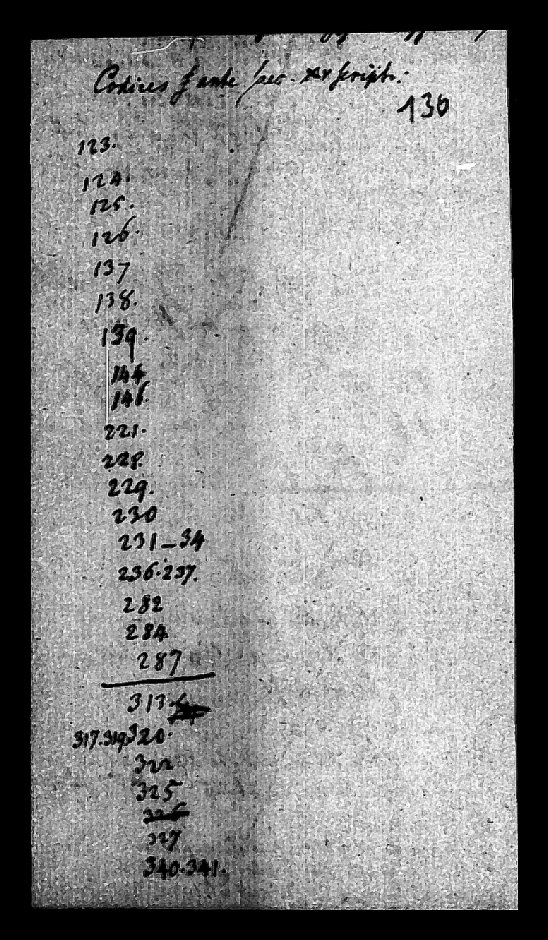 Codices ante sec. XV script.
130
123.
124.
125.
126.
137
138.
139.
144
146.
221.
228.
229.
230
231-34
236.237.
282
284
287
313
317.319.320.
322
325
326
327
340.341.